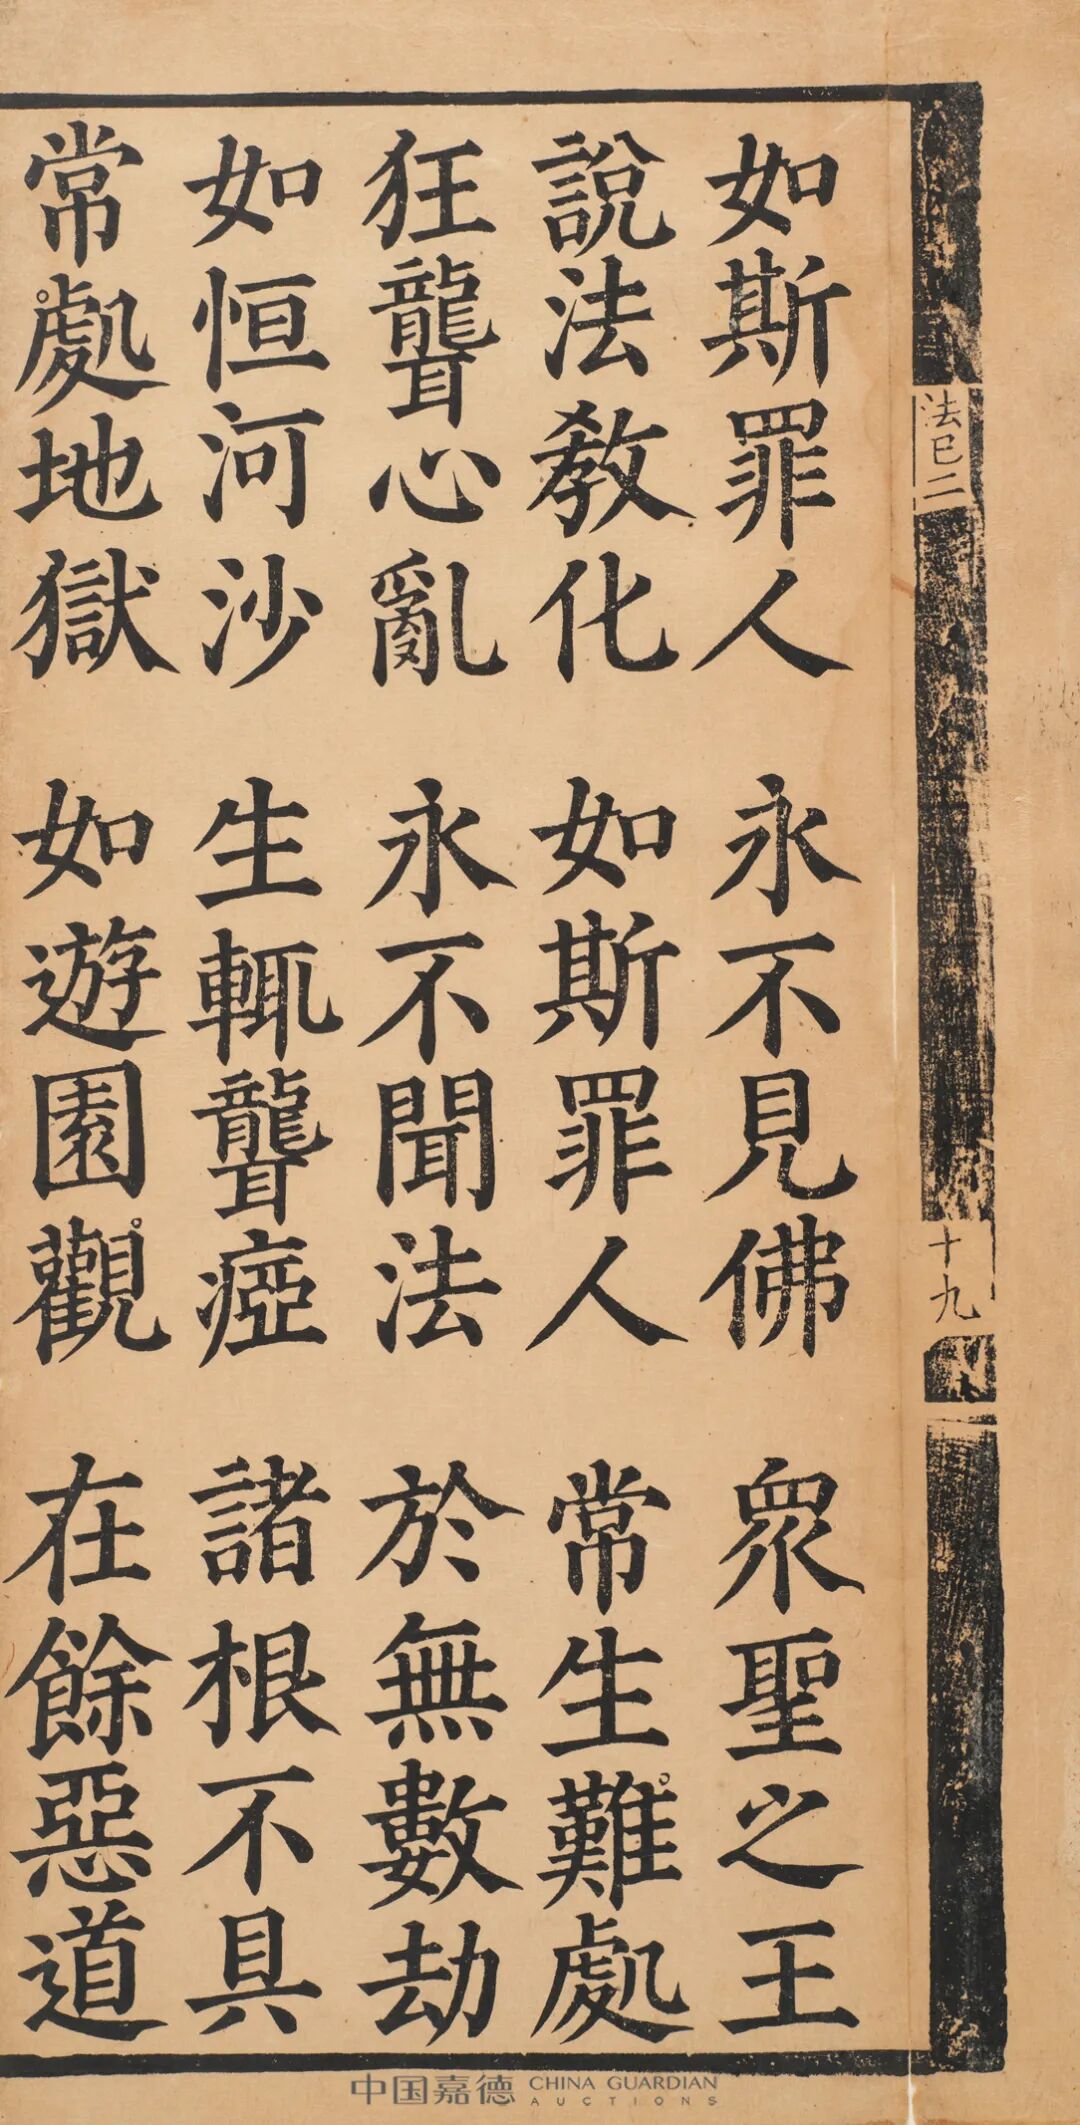 法巳二
十九
如斯罪人 永不見佛 衆聖之王
說法教化 如斯罪人 常生難處
狂聾心亂 永不聞法 於無數劫
如恒河沙 生輒聾瘂 諸根不具
常處地獄 如遊園觀 在餘惡道
中国嘉德 CHINA GUARDIAN
AUCTIONS